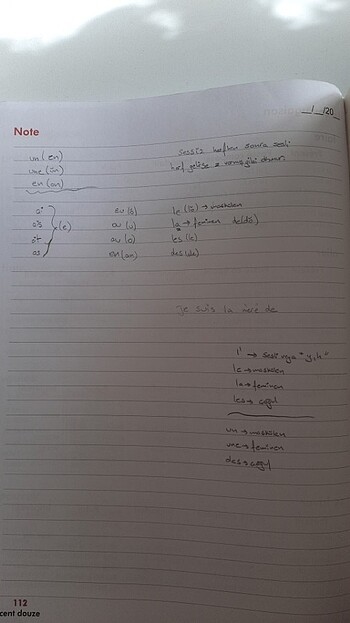 __/__/20__
Note
un (en)
une (ün)
en (an)
sessiz harften sonra sesli
harf gelirse
ai
ais
ait
as
(e)
eu (ö)
ou (u)
au (o)
en (an)
le (lö) → maskülen
la → feminen de (dö)
les (le)
des (de)
Je suis la mère de
l' → sesli veya "y,h"
le → maskülen
la → feminen
les → çoğul
un → maskülen
une → feminen
des → çoğul
112
cent douze